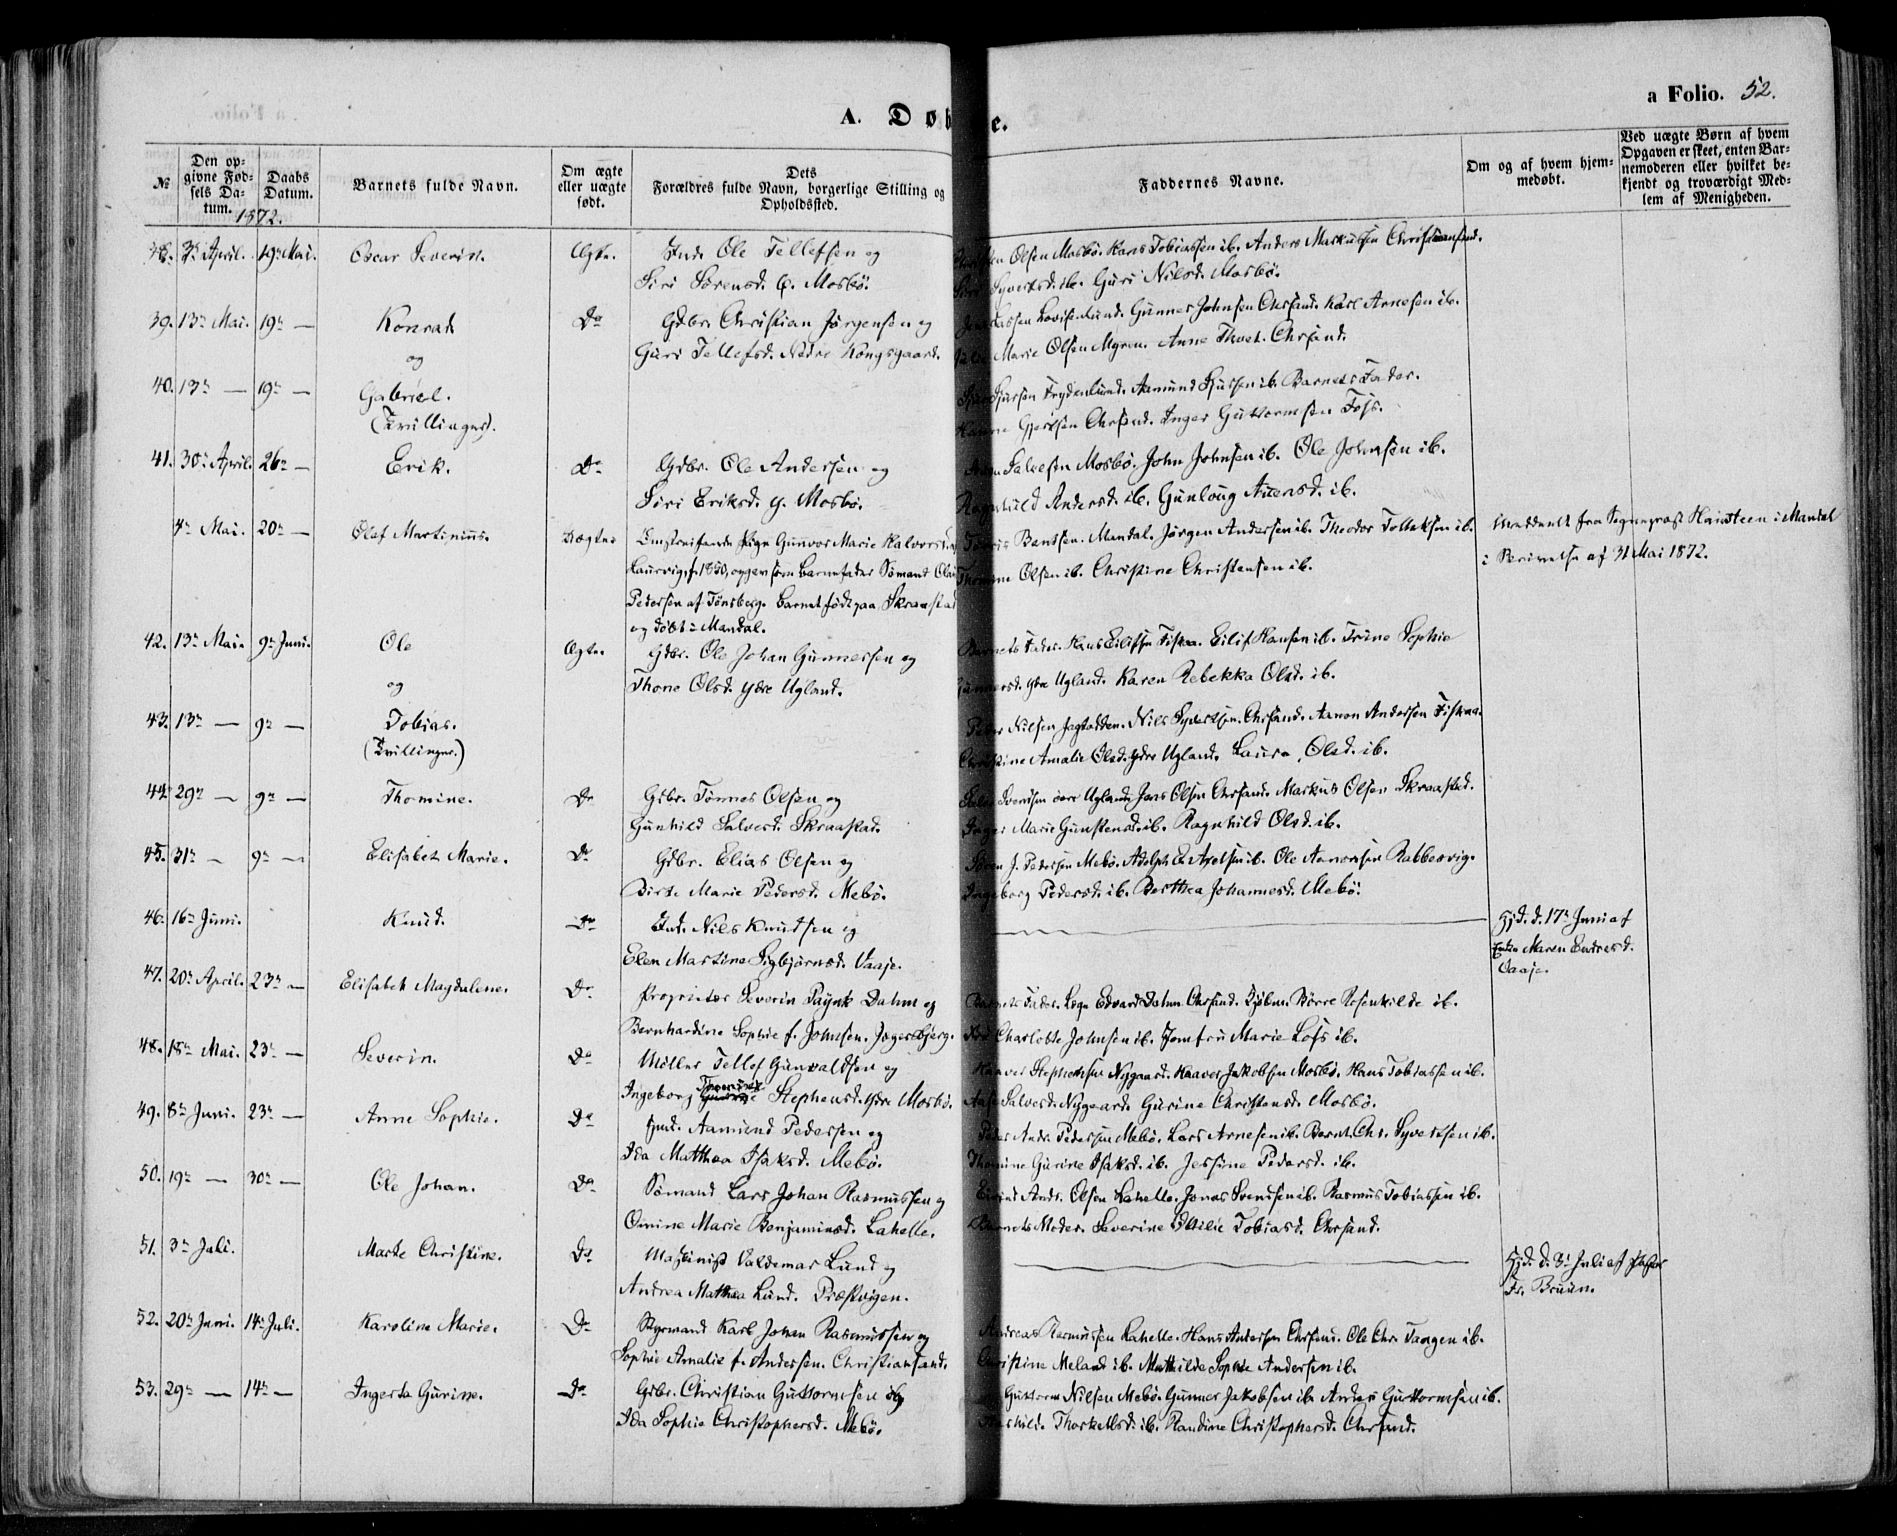 a Folio. 52.
A. Døb e.
№
Den op-
givne Fød-
sels Da-
tum.
1872.
Daabs
Datum.
Barnets fulde Navn.
Om ægte
eller uægte
født.
Dets
Forældres fulde Navn, borgerlige Stilling og
Opholdssted.
Faddernes Navne.
Om og af hvem hjem-
medøbt.
Ved uægte Børn af hvem
Opgaven er skeet, enten Bar-
nemoderen eller hvilket be-
kjendt og troværdigt Med-
lem af Menigheden.
38. 3de April. 19de Mai. Oscar Severin. Ægte. Ind. Ole Tellefsen og Olsen Mosbø. Hans Tobiassen ib. Anders Markussen Christiansand.
Siri Sørensd. Mosbø. Syvertsd. ib. Guri Nilsd. Mosbø.
39. 13de Mai. 19de — Konrad Do Gdbr. Christian Jørgensen og Lovisenlund. Gunner Johnsen Chrsand. Karl Arnesen ib.
og Guri Tellefsd. Nedre Kongsgaard. Marie Olsen Myren. Anne Thvet. Chrsand.
40. 13de — 19de — Gabriel. Sjursen Frydenlund. Aamund Sjursen ib. Barnets Fader.
(Tvillinger). Hanne Gjertsen Chrsand. Inger Guttormsen Foss.
41. 30te April. 26de — Erik. Do Gdbr. Ole Andersen og Salvesen Mosbø. John Johnsen ib. Ole Johnsen ib.
Siri Eriksd. y. Mosbø. Ragnhild Andersd. ib. Gunloug Atlensd. ib.
4de Mai. 20de — Olaf Martinius. Uægte Omstreifende Pige Gunvor Marie Halvorsd. af Bentsen. Mandal. Jørgen Andersen ib. Theodor Tollaksen ib. Meddeelt fra Sogneprest Hansteen i Mandal
Laurvig, f. 1850, opgav som Barnefader Sømand Olaus Thomine Olsen ib. Christine Christensen ib. i Skrivelse af 31 Mai 1872.
Pedersen af Tønsberg. Barnet født paa Skraastad
og døbt i Mandal.
42. 13de Mai. 9de Juni. Ole Ægte. Gdbr. Ole Johan Gunnersen og Barnets Fader. Hans Eilifsen Fiskaa. Eilif Hansen ib. Trine Sophie
og Thone Olsd. ydre Ugland. Gunnersd. ydre Ugland. Karen Rebekka Olsd. ib.
43. 13de — 9de — Tobias. Peder Nilsen Jegtodden. Nils Syvertsen. Chrsand. Aanon Andersen Fiskaa.
(Tvillinger.) Christine Amalie Olsd. ydre Ugland. Laura Olsd. ib.
44. 29de — 9de — Thomine. Do Gdbr. Tønnes Olsen og Svendsen øvre Ugland. Jens Olsen Chrsand. Markus Olsen Skraastad.
Gunhild Salvesd. Skraastad. Inger Marie Gunstensd. ib. Ragnhild Olsd. ib.
45. 31te — 9de — Elisabet Marie. Do Gdbr. Elias Olsen og Søren J. Pedersen Mebø. Adolph E. Axelsen ib. Ole Aanonsen Rabbersvig.
Birte Marie Pedersd. Mebø. Ingeborg Pedersd. ib. Berthea Johannesd. Mebø.
46. 16de Juni. Knud. Do Ind. Nils Knudsen og Hjd. d. 17de Juni af
Elen Martine Sigbjørnsd. Vaaje. Maren Endresd.
Vaaje.
47. 20de April. 23de — Elisabet Magdalene. Do Proprietær Severin Paynk Dahm og Barnets Fader. Edvard Dahm. Chrsand. Børre Rosenkilde ib.
Bernhardine Sophie f. Johnsen. Jegersbjerg. Charlotte Johnsen ib. Jomfru Marie Lofs ib.
48. 18de Mai. 23de — Severin. Do Møller Tellef Gunvaldsen og Haaver Stephensen Nygaard. Haaver Jakobsen Mosbø. Hans Tobiassen ib.
Ingeborg Stephensd. ydre Mosbø. Aase Salvesd. Nygaard. Gurine Christensd. Mosbø.
49. 8de Juni. 23de — Anne Sophie. Do Aamund Pedersen og Peder Andr. Pedersen Mebø. Lars Arnesen ib. Bernt. Chr. Syvertsen ib.
Ida Matthea Isaksd. Mebø. Thomine Gurine Isaksd. ib. Jessine Pedersd. ib.
50. 19de — 30te — Ole Johan. Do Sømand Lars Johan Rasmussen og Eivind Andr. Olsen Lahelle. Jonas Svendsen ib. Rasmus Tobiassen ib.
Omine Marie Benjaminsd. Lahelle. Barnets Moder. Severine Othilie Tobiasd. Chrsand.
51. 3de Juli. Marte Christine. Do Maskinist Valdemar Lund og Hjd. d. 3de Juli af
Andrea Mathea Lund. Præstvigen. Fr. Bruun.
52. 20de Juni. 14de Juli. Karoline Marie. Do Styrmand Karl Johan Rasmussen og Andreas Rasmussen Lahelle. Hans Andersen Chrsand. Ole Chr. Tangen ib.
Sophie Amalie f. Andersen. Christiansand. Christine Meland ib. Mathilde Sophie Andersen ib.
53. 29de — 14de — Ingerta Gurine. Do Gdbr. Christian Guttormsen og Guttorm Nilsen Mebø. Gunner Jakobsen ib. Anders Guttormsen ib.
Ida Sophie Christophersd. Mebø. Thorkelsd. ib. Randine Christophersd. Chrsand.